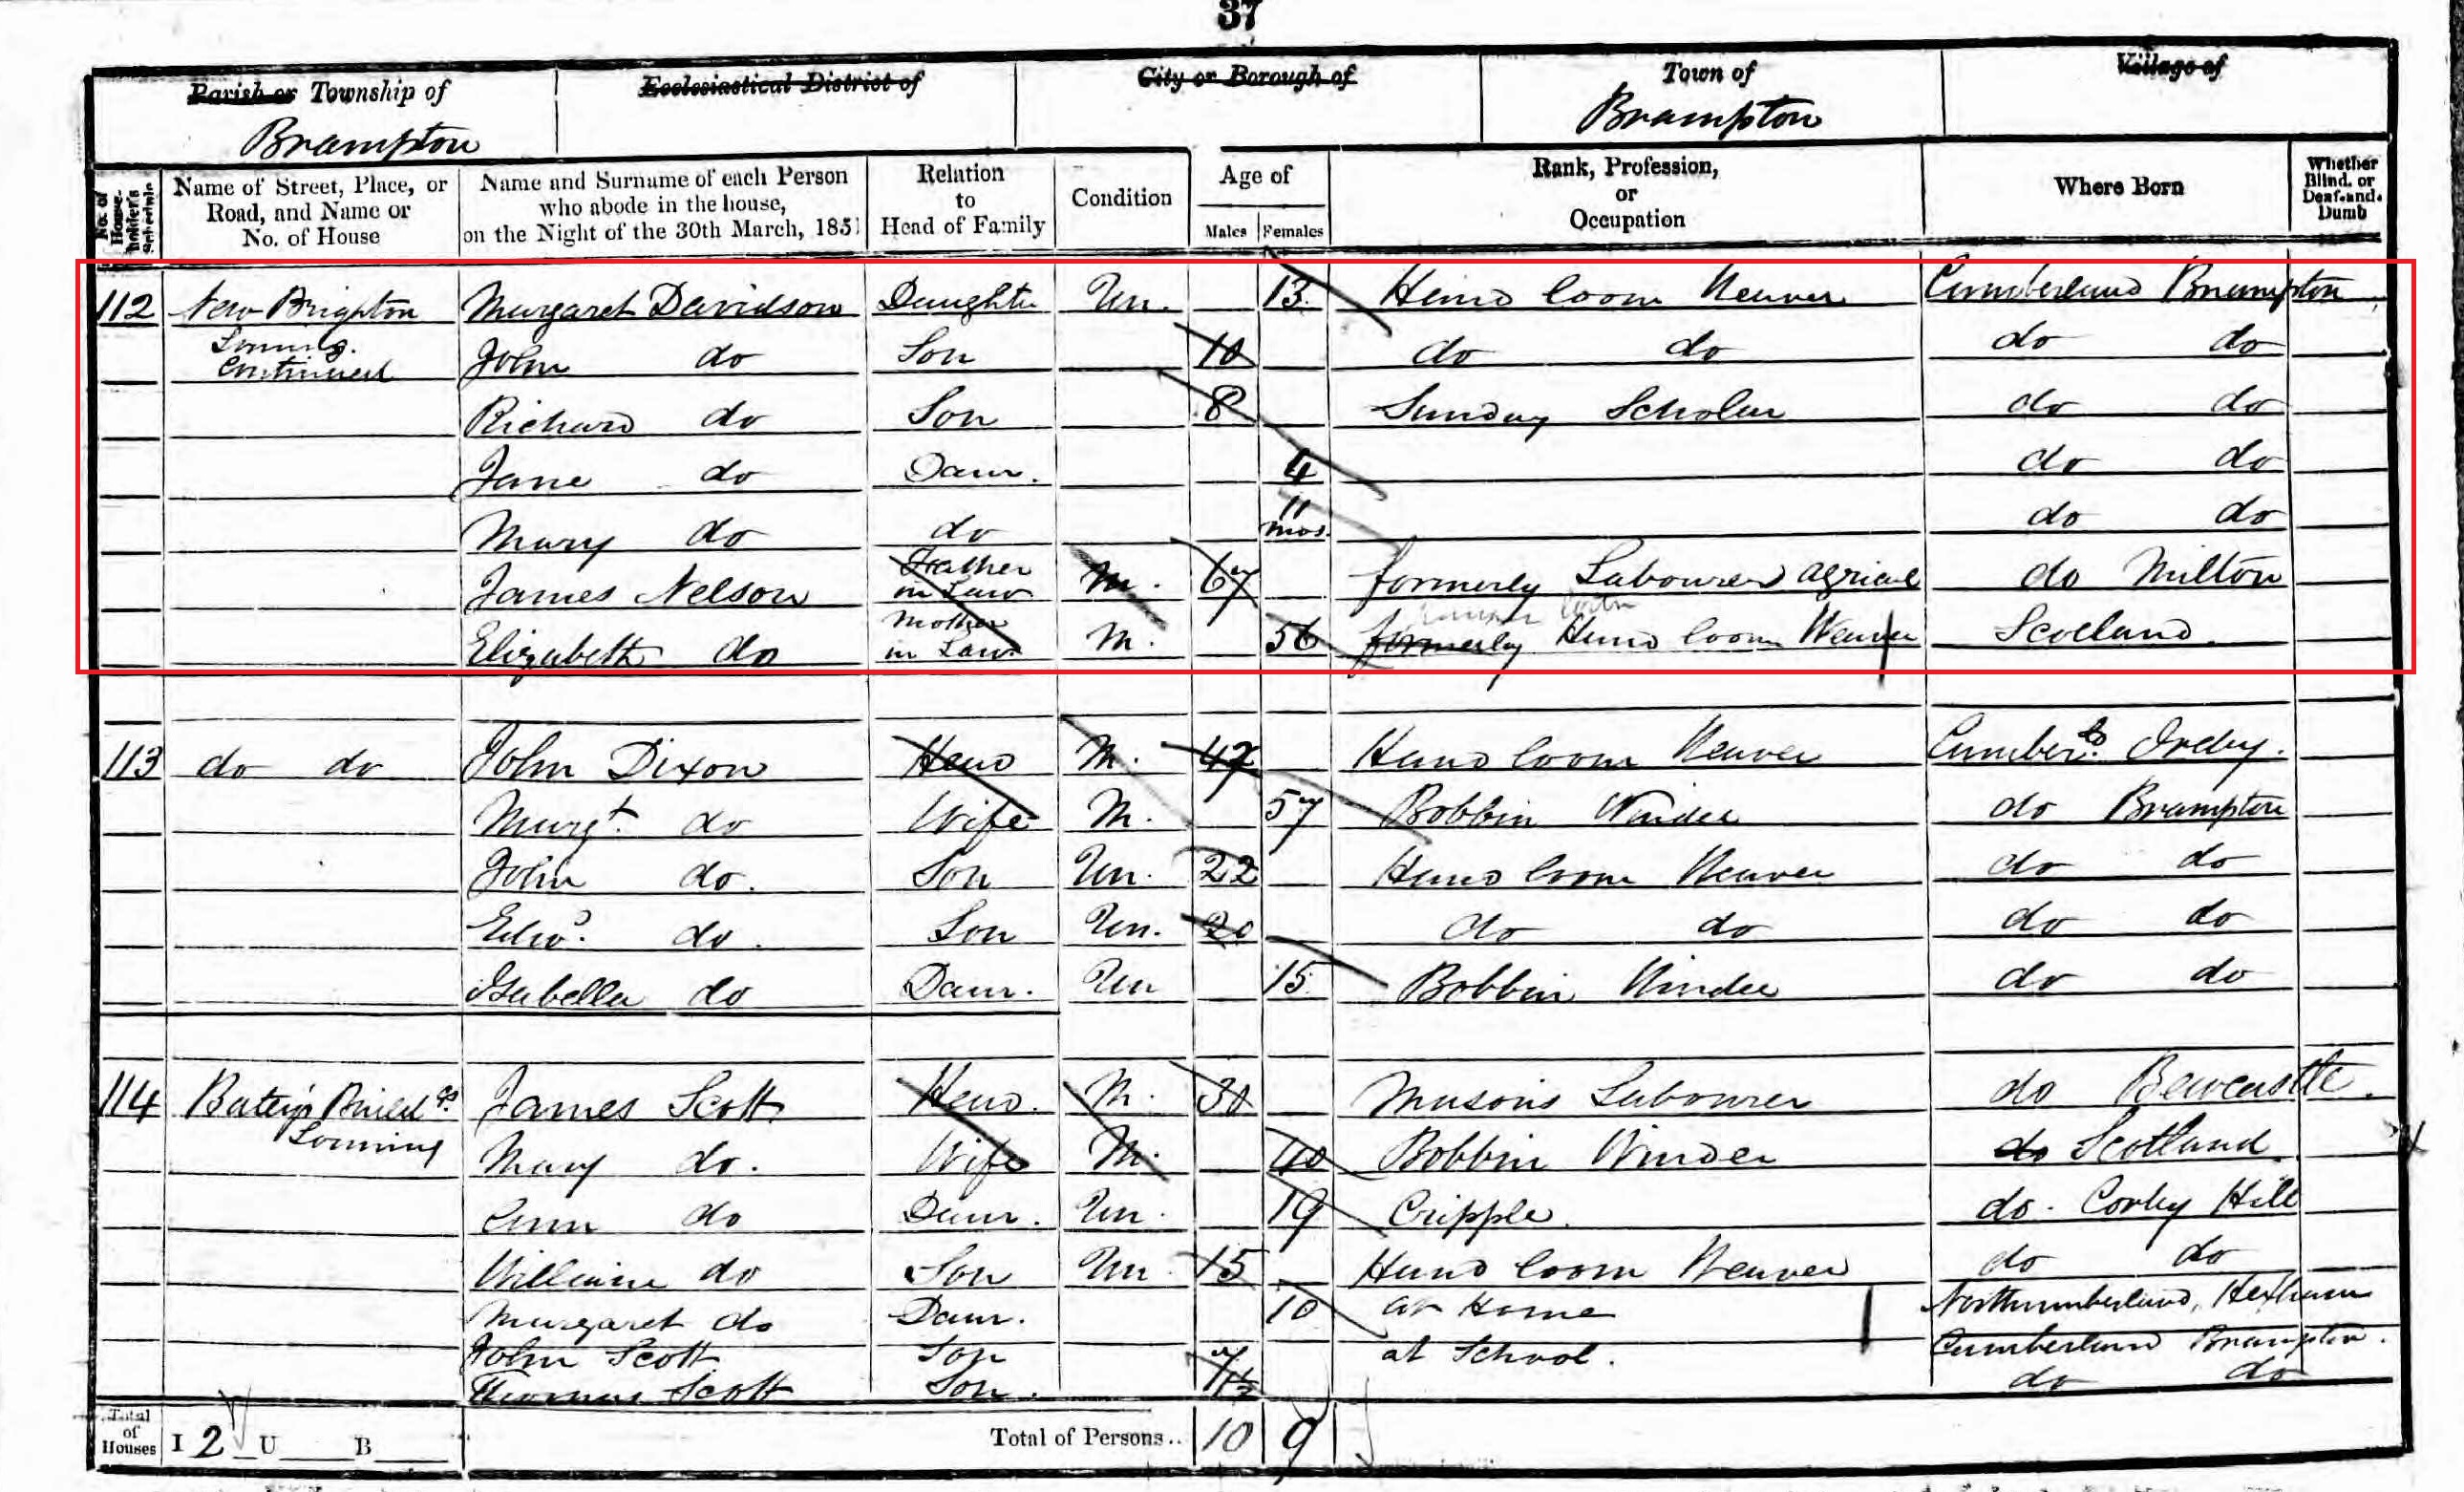 37
Parish or Township of
Brampton
Ecclesiastical District of
City or Borough of
Town of
Brampton
Village of
No. of House-holder's Schedule
Name of Street, Place, or Road, and Name or No. of House
Name and Surname of each Person who abode in the house, on the Night of the 30th March, 1851
Relation to Head of Family
Condition
Age of
Males Females
Rank, Profession, or Occupation
Where Born
Whether Blind, or Deaf-and-Dumb
112 New Brighton Margaret Davidson Daughter Un. 13 Hand loom Weaver Cumberland Brampton
Lonning. John do Son 10 do do do do
Continued
Richard do Son 8 Sunday Scholar do do
Jane do Daur. 4 do do
Mary do do 11 mos. do do
James Nelson Father in Law M. 67 formerly Labourer agricul do Milton
Elizabeth do Mother in Law M. 56 formerly Hand loom Weaver Scotland.
113 do do John Dixon Head M. 47 Hand loom Weaver Cumberd. Ireby.
Margt. do Wife M. 57 Bobbin Winder do Brampton
John do. Son Un. 22 Hand loom Weaver do do
Edwd. do. Son Un. 20 do do do do
Isabella do Daur. Un 15 Bobbin Winder do do
114 Batey's Buildgs. James Scott Head. M. 30 Masons Labourer do Bewcastle.
Lonning Mary do. Wife M. 40 Bobbin Winder do Scotland.
Ann do Daur. Un. 19 Cripple. do. Corby Hill
William do Son Un. 15 Hand loom Weaver do do
Margaret do Daur. 10 at Home Northumberland, Hexham
John Scott Son 7 at School. Cumberland Brampton.
Thomas Scott Son. do do
Total of Houses I 2 U B Total of Persons.. 10 9